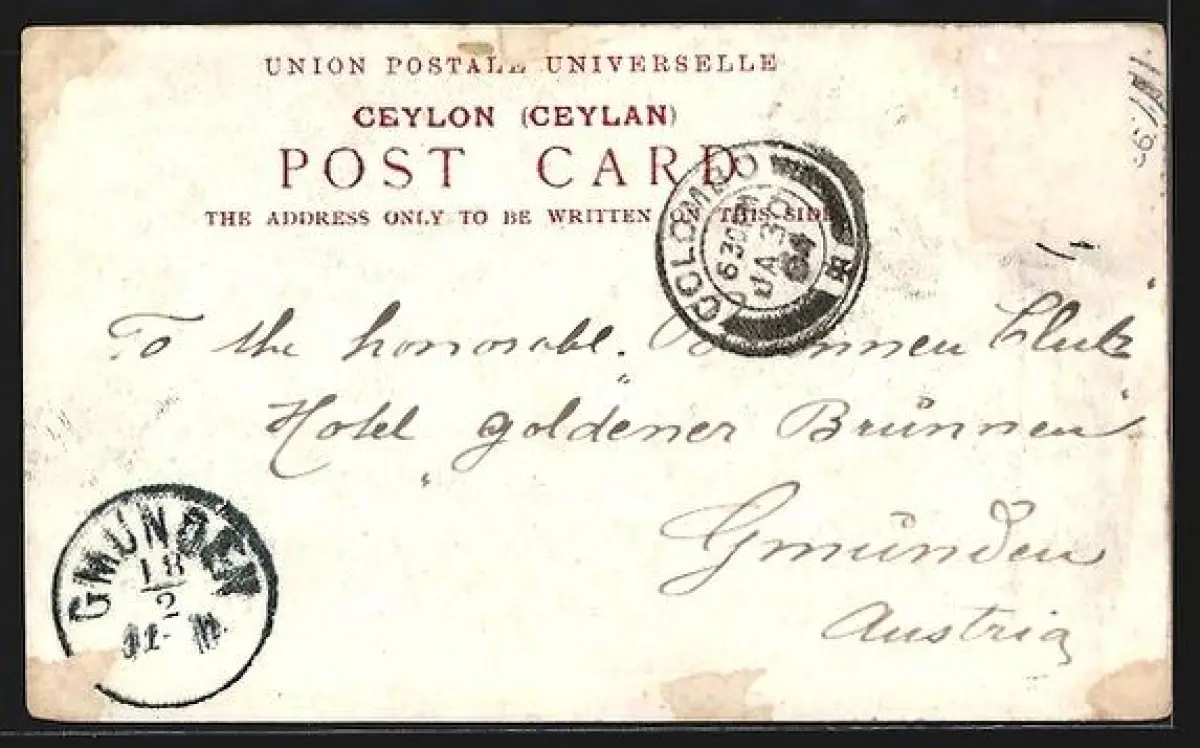 UNION POSTALE UNIVERSELLE
CEYLON (CEYLAN)
POST CARD
THE ADDRESS ONLY TO BE WRITTEN ON THIS SIDE
COLOMBO
630 PM
JA 30
04
To the honorable.
Hotel "goldener Brünnen"
Gmünden
Austria
GMUNDEN
18
2